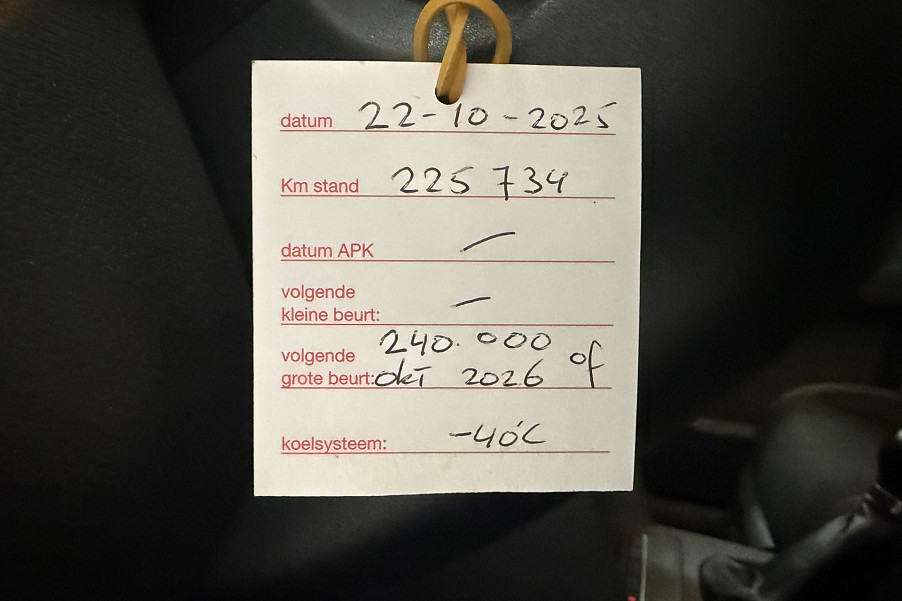 datum 22-10-2025
Km stand 225 734
datum APK —
volgende
kleine beurt: —
volgende 240.000 of
grote beurt: okt 2026
koelsysteem: -40°C